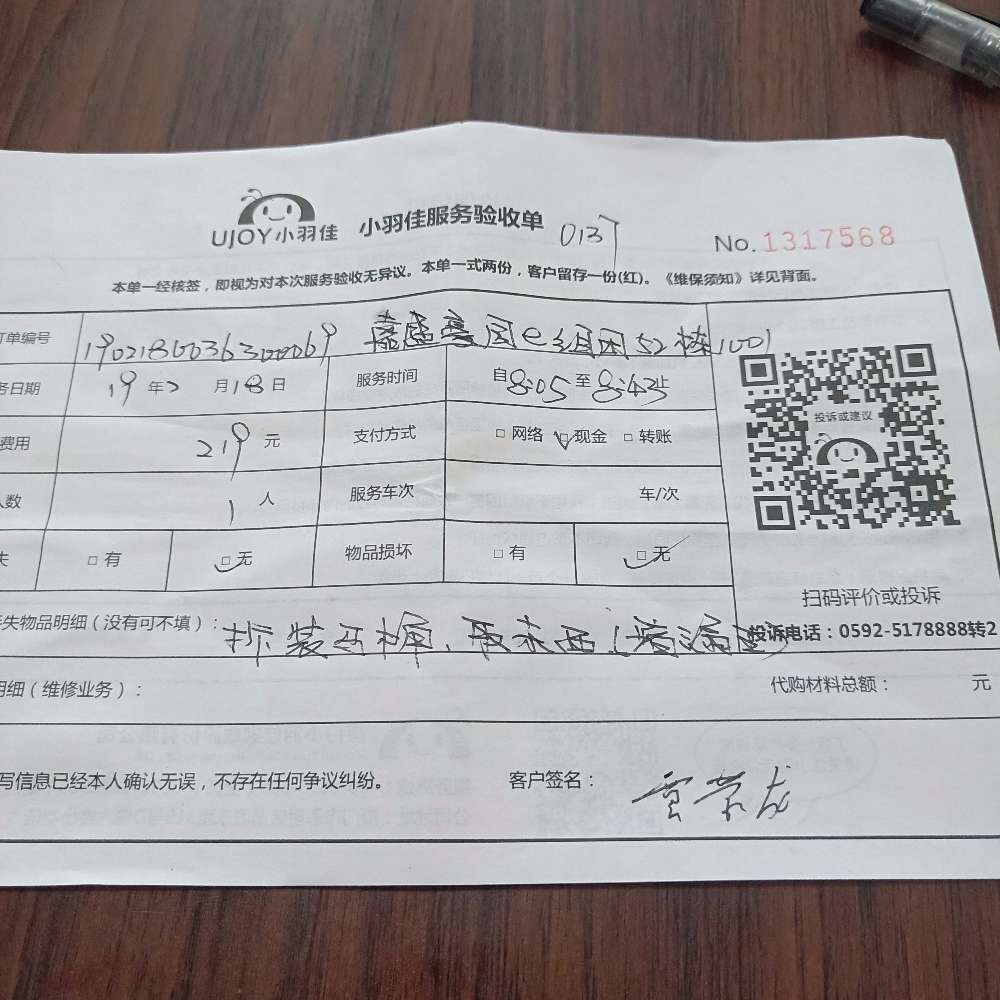 UJOY小羽佳 小羽佳服务验收单 No.1317568
本单一经核签，即视为对本次服务验收无异议。本单一式两份，客户留存一份(红)。《维保须知》详见背面。
订单编号 嘉盛豪园e组团52栋1001
务日期 19年2月18日 服务时间 自8:05至8:43止
费用 219元 支付方式 □网络 □现金 □转账
人数 1人 服务车次 车/次
失 □有 □无 物品损坏 □有 □无
投诉或建议
扫码评价或投诉
投诉电话：0592-5178888转2
失物品明细（没有可不填）： 拆装马桶、取东西
明细（维修业务）： 代购材料总额： 元
写信息已经本人确认无误，不存在任何争议纠纷。 客户签名：